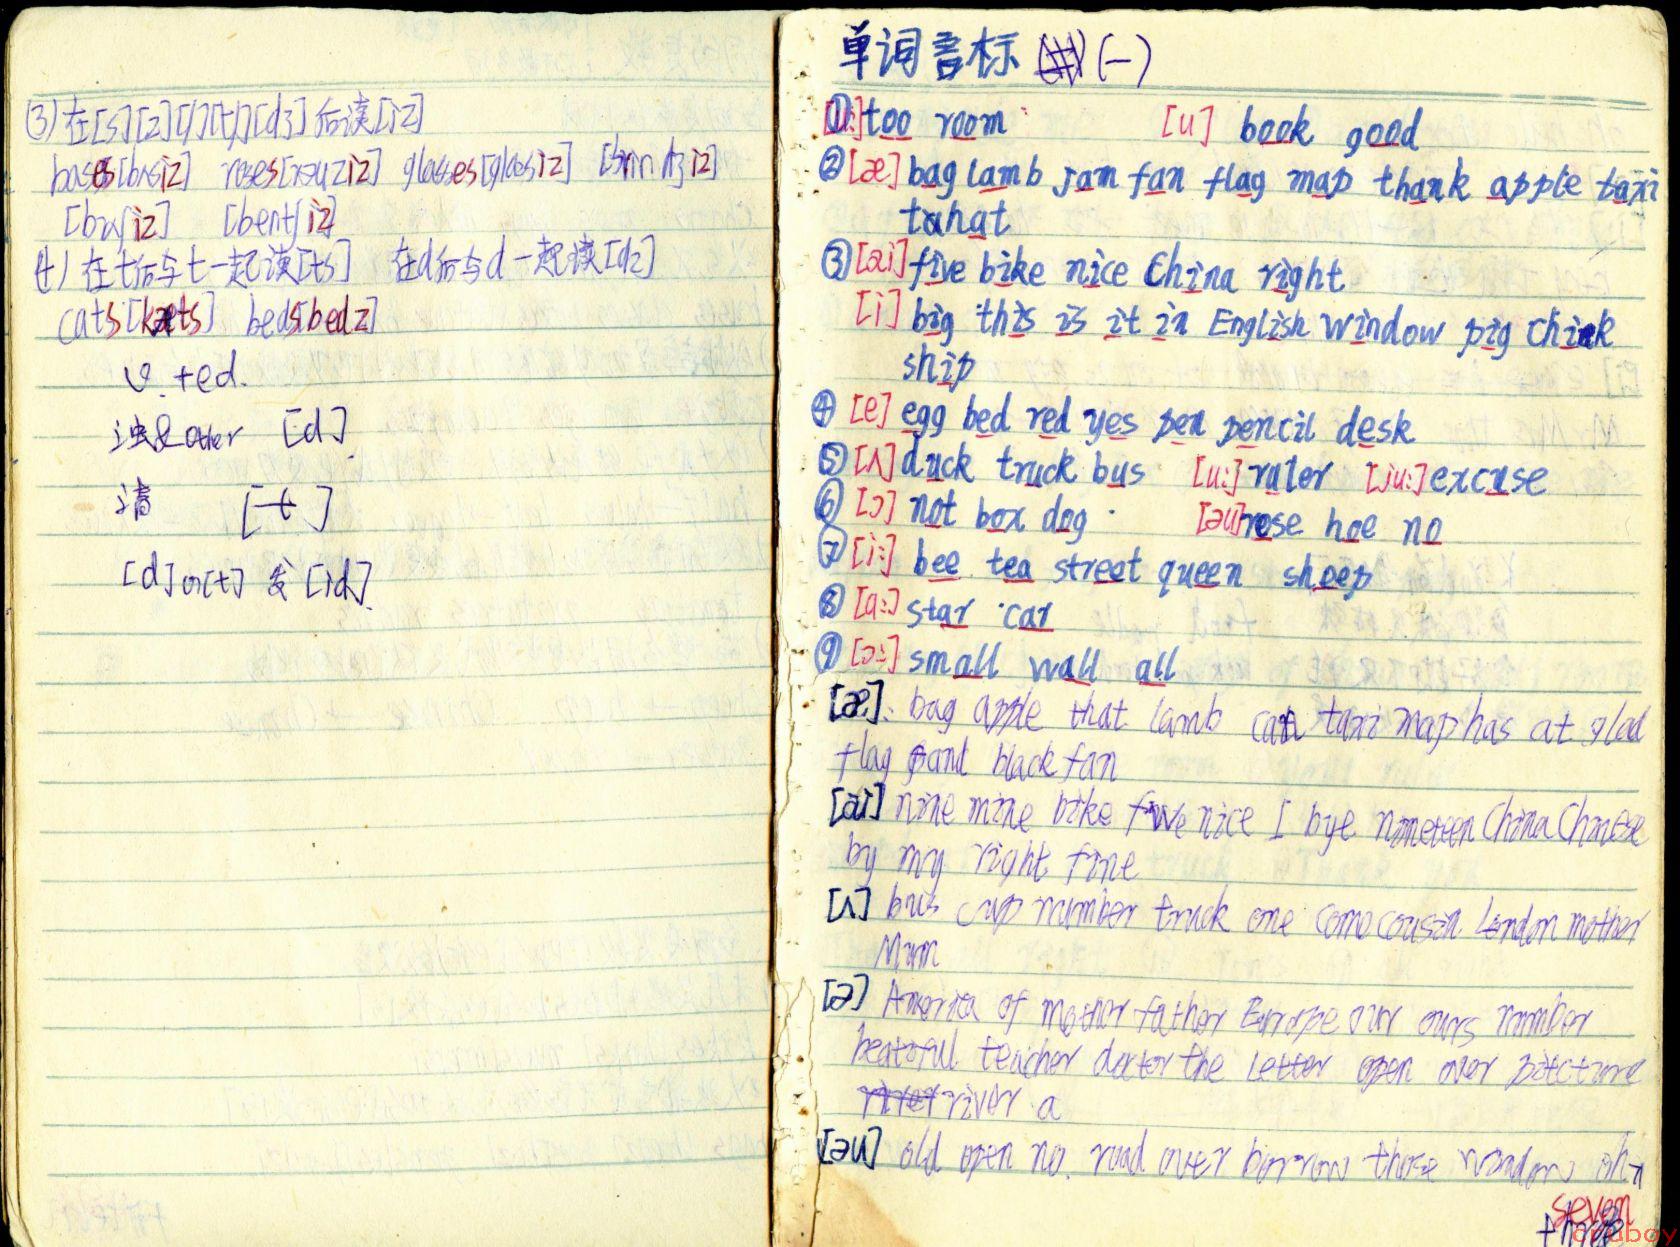 (3) 在[s][z][ʃ][tʃ][dʒ]后读[iz]
bases[beisiz] roses[rəuziz] glasses[glɑsiz] [brindʒiz]
[bʌʃiz] [bentʃiz]
(4) 在t后与t一起读[ts] 在d后与d一起读[dz]
cats[kæts] beds[bedz]
v. +ed.
浊及other [d]
清 [t]
[d] or[t] 发 [id].
单词音标 (一)
①[u:]too room [u] book good
②[æ]bag lamb jam fan flag map thank apple taxi
that
③[ai]five bike nice China right
[i] big this is it in English window pig chick
ship
④ [e] egg bed red yes pen pencil desk
⑤ [ʌ]duck truck bus [u:]ruler [ju:]excuse
⑥ [ɔ] not box dog [əu]rose hoe no
⑦ [i:] bee tea street queen sheep
⑧ [a:] star car
⑨ [ɔ:] small wall all
[æ]. bag apple that lamb can taxi map has at glad
flag hand black fan
[ai] nine mine bike five nice I bye nineteen China Chinese
by my right fine
[ʌ] bus cup number truck one come cousin London mother
Mum
[ə] America of mother father Europe our ours number
beatoful teacher doctor the letter open over pitcture
river a
[əu] old open no. road over borrow those window oh
seven
cnuboy